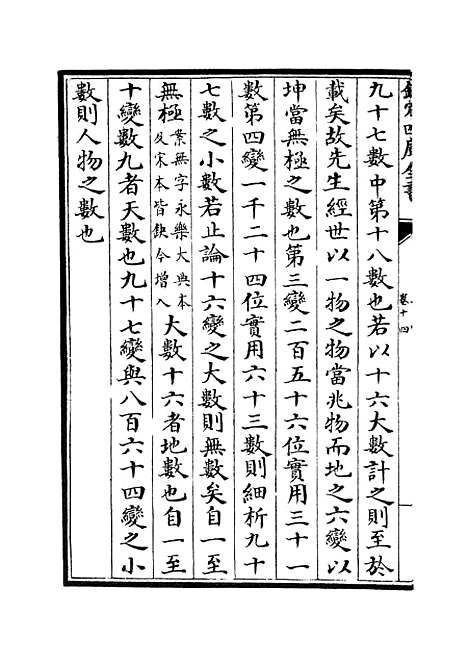 欽定四庫全書
卷十四
九十七數中第十八數也若以十六大數計之則至於
載矣故先生經世以一物之物當兆物而地之六變以
坤當無極之數也第三變二百五十六位實用三十一
數第四變一千二十四位實用六十三數則細析九十
七數之小數若止論十六變之大數則無數矣自一至
無極案無字永樂大典本及宋本皆缺今增入大數十六者地數也自一至
十變數九者天數也九十七變與八百六十四變之小
數則人物之數也